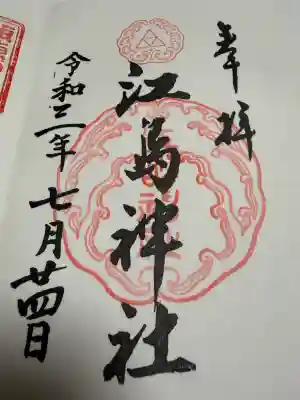 奉拝
江島神社
令和二年七月廿四日